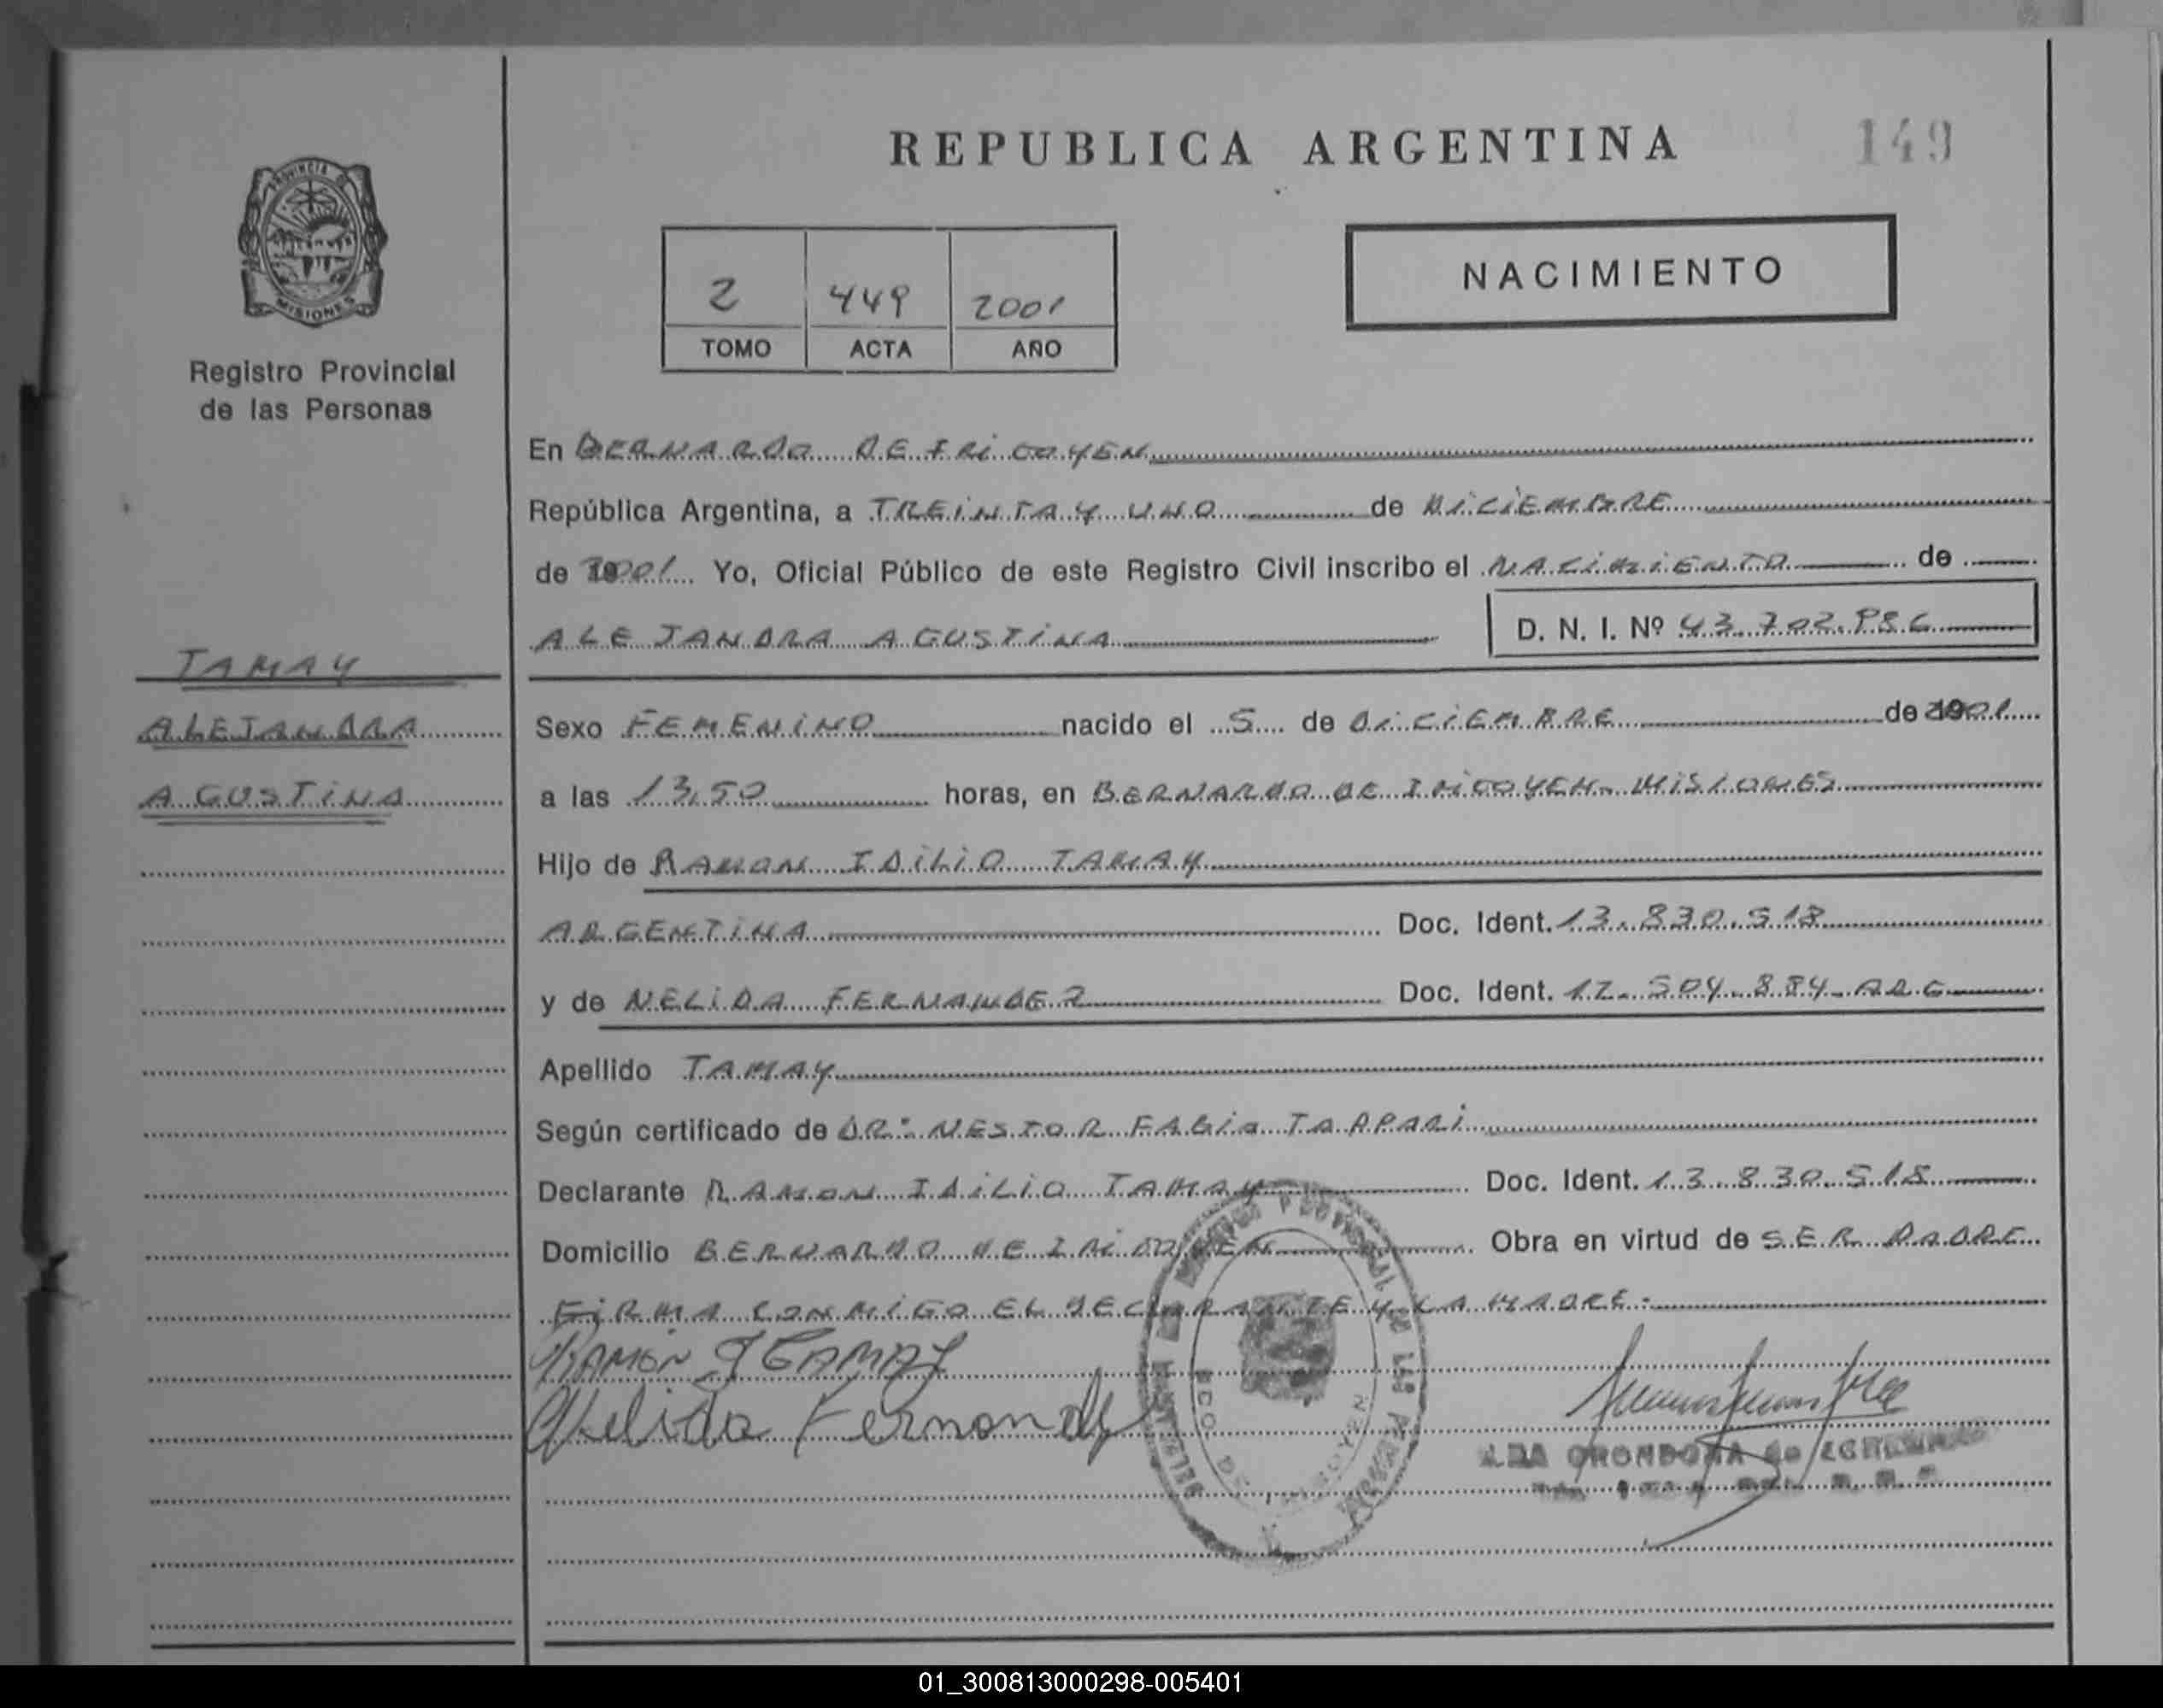 REPUBLICA ARGENTINA
149
PROVINCIA DE
MISIONES
Registro Provincial
de las Personas
2 449 2001
TOMO ACTA AÑO
NACIMIENTO
En BERNARDO DE IRIGOYEN
República Argentina, a TREINTA Y UNO de DICIEMBRE
de 2001 Yo, Oficial Público de este Registro Civil inscribo el NACIMIENTO de
ALEJANDRA AGUSTINA D. N. I. Nº 43.702.986
TAMAY
ALEJANDRA
AGUSTINA
Sexo FEMENINO nacido el 5 de DICIEMBRE de 2001
a las 13,50 horas, en BERNARDO DE IRIGOYEN - MISIONES
Hijo de RAMON IDILIO TAMAY
ARGENTINA Doc. Ident. 13.830.518
y de NELIDA FERNANDEZ Doc. Ident. 17.504.884 - ARG
Apellido TAMAY
Según certificado de DR: NESTOR FABIO TAPPARI
Declarante RAMON IDILIO TAMAY Doc. Ident. 13.830.518
Domicilio BERNARDO DE IRIGOYEN Obra en virtud de SER PADRE
FIRMA CONMIGO EL DECLARANTE Y LA MADRE.-
RAMON I TAMAY
Nelida Fernandez
01_300813000298-005401